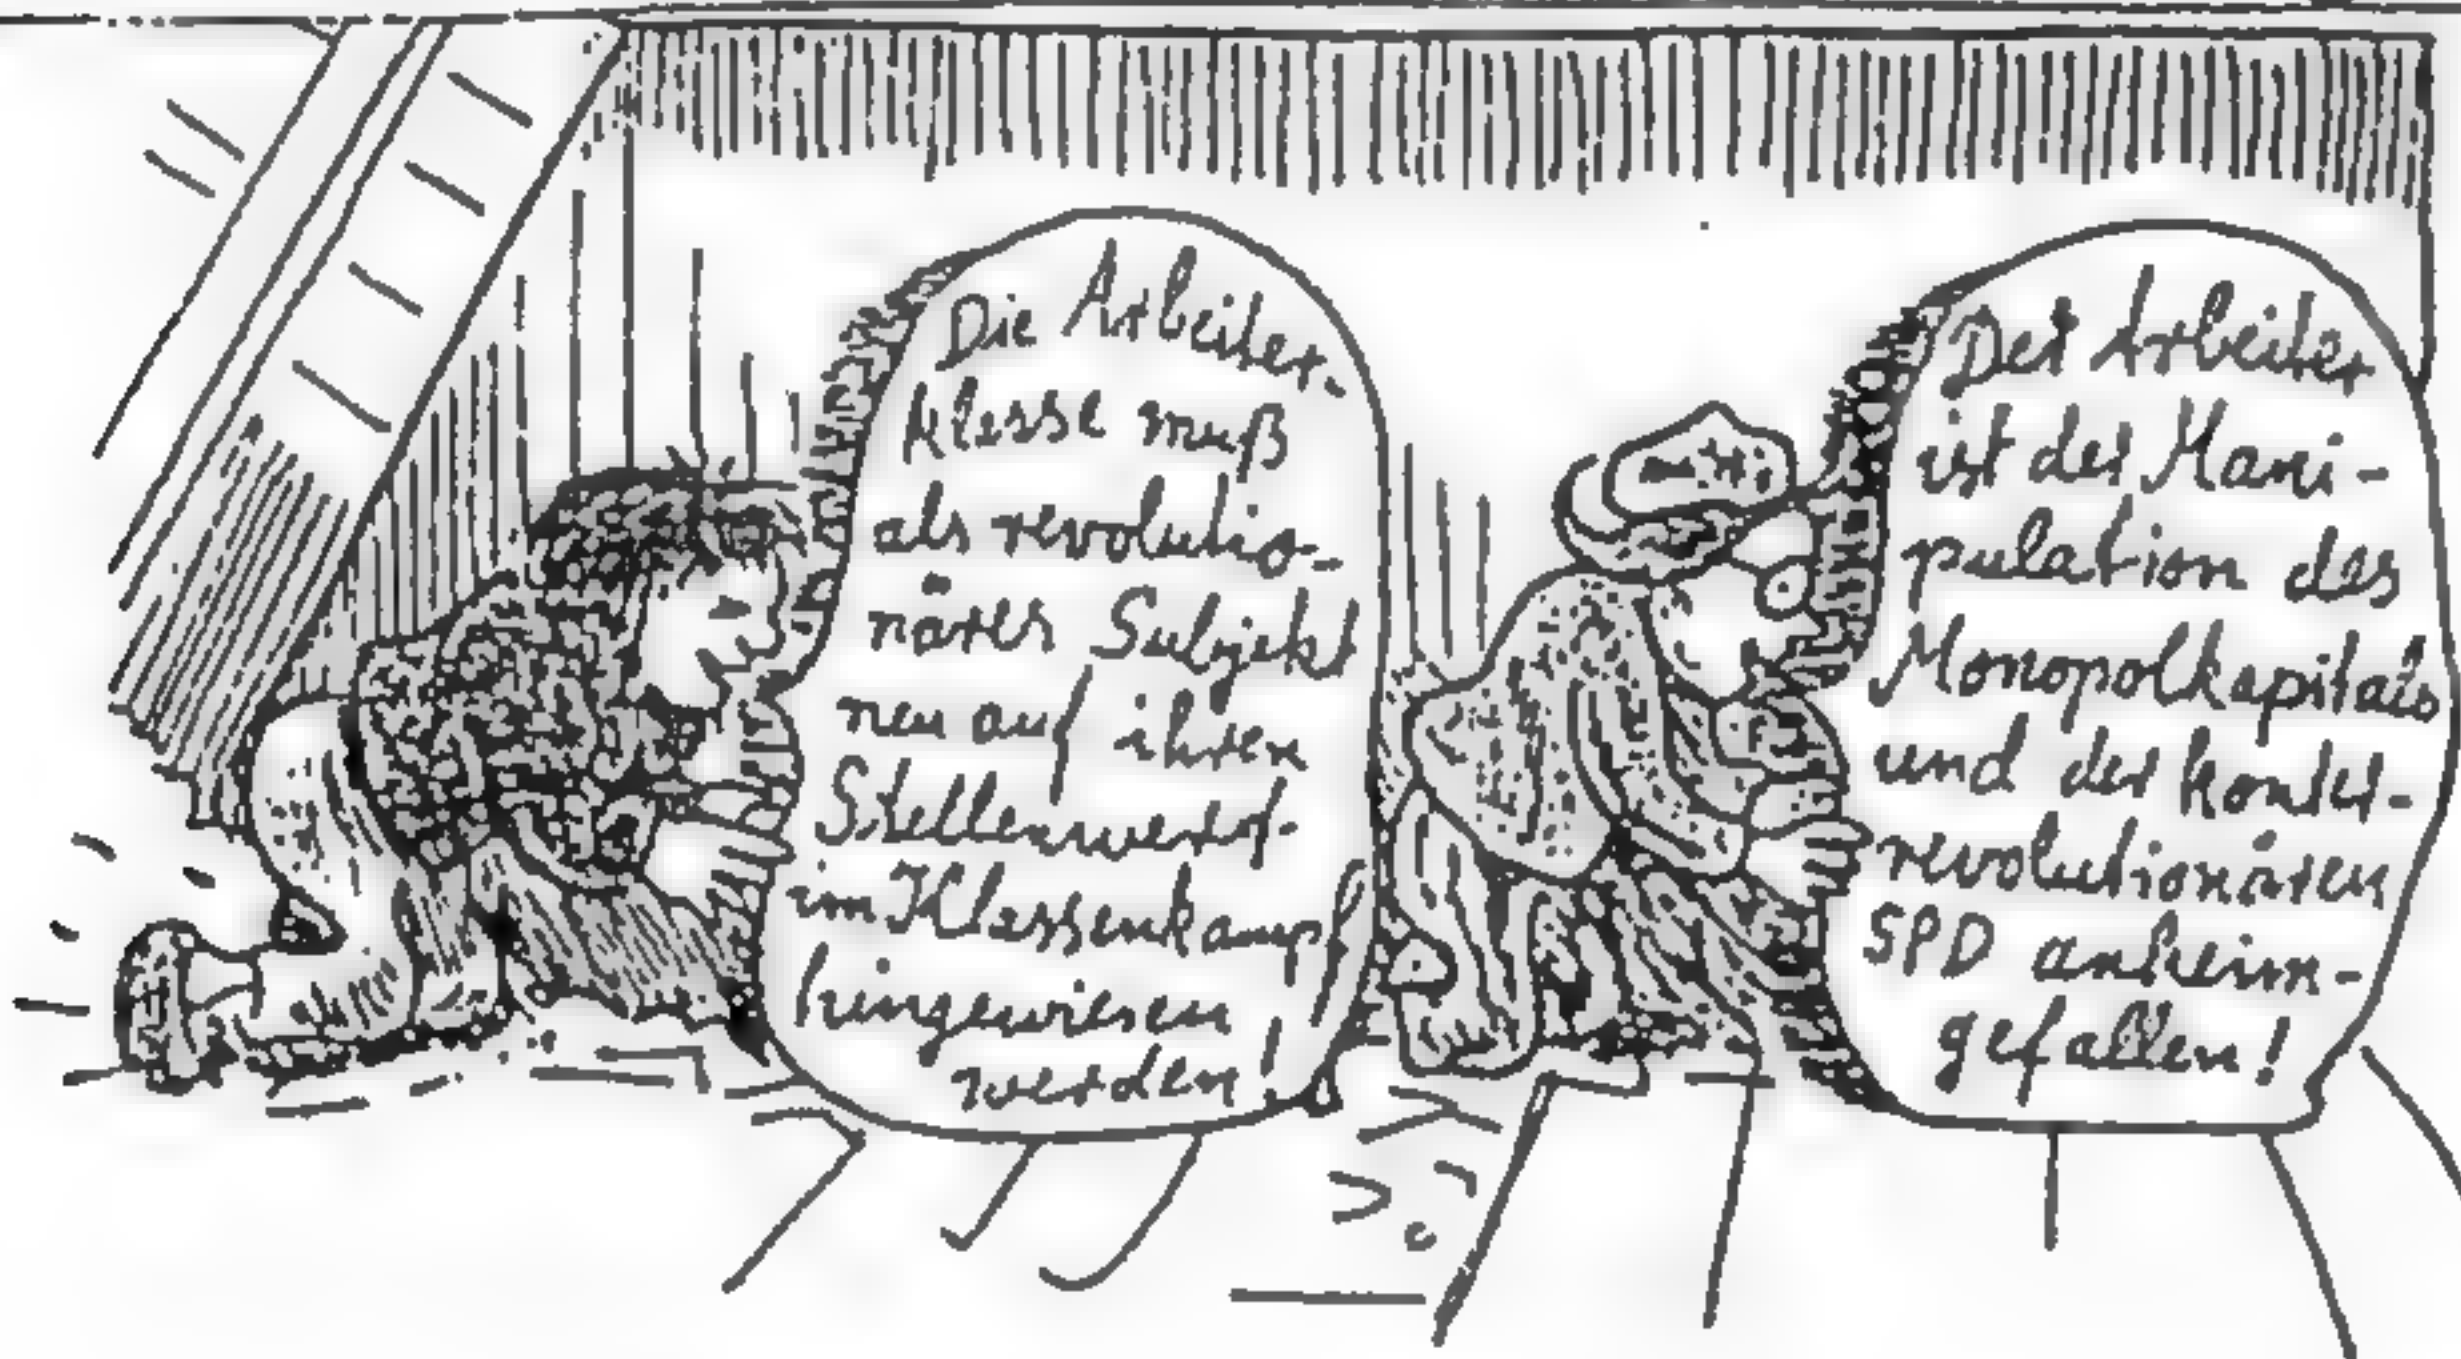 Die Arbeiter-
klasse muß
als revolutio-
näres Subjekt
neu auf ihren
Stellenwert
im Klassenkampf
hingewiesen
werden!
Der Arbeiter
ist der Mani-
pulation des
Monopolkapitals
und der konter-
revolutionären
SPD anheim-
gefallen!